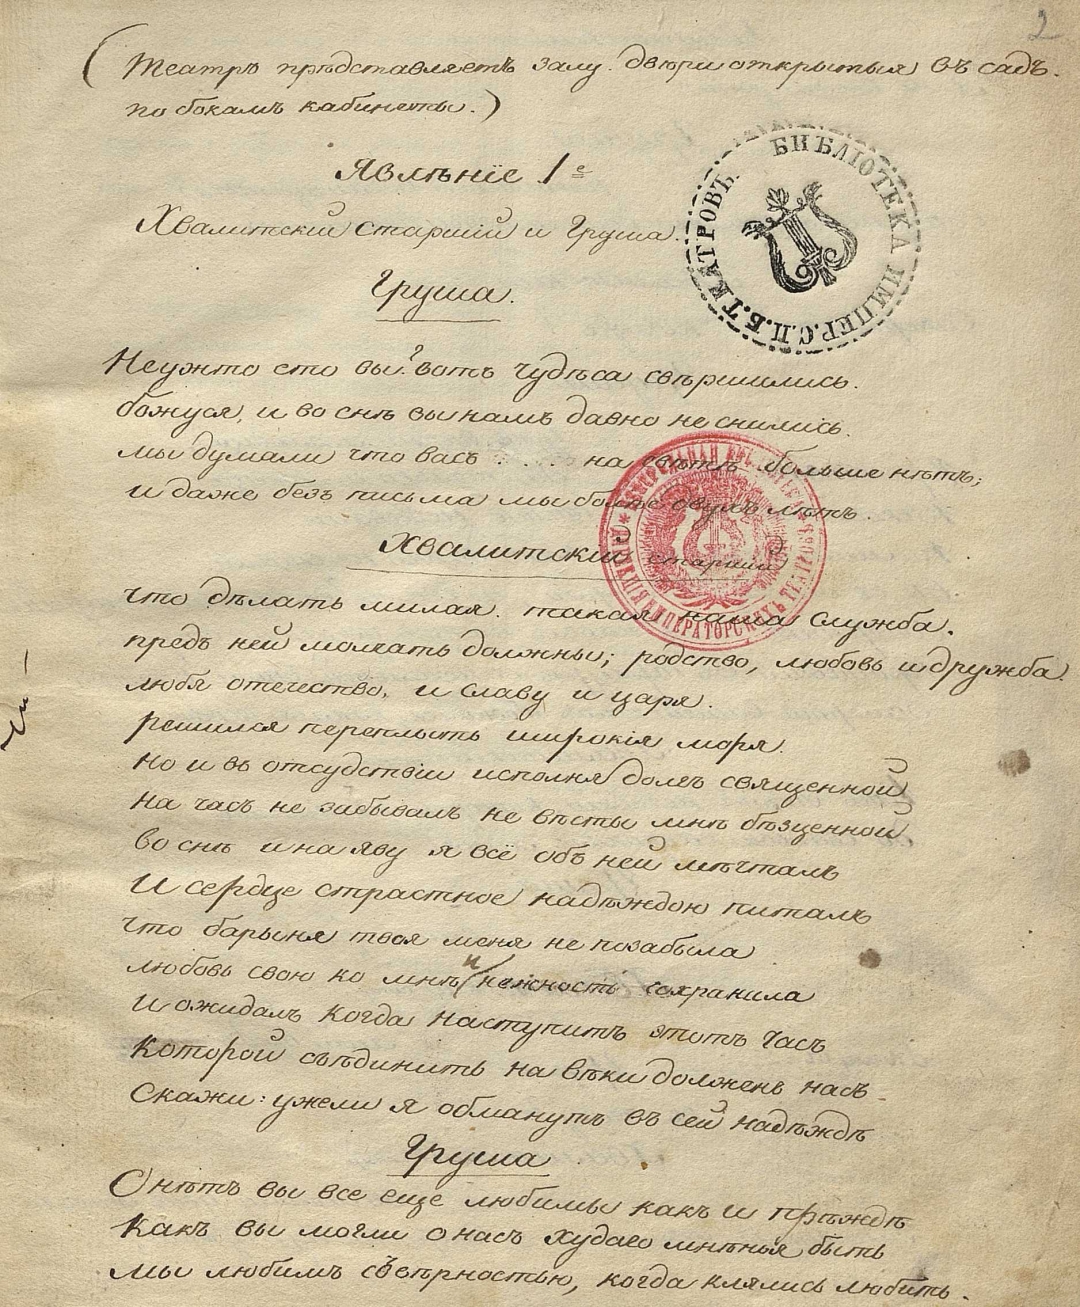 2
(Театръ прѣдставляетъ залу. двѣри открытыя въ садъ.
по бокамъ кабинеты.)
Явлѣніе 1е
Хвалитскій старшій и Груша.
Груша.
Неужто ето вы? вотъ чудѣса свѣршились.
божуся, и во снѣ вы намъ давно не снились.
мы думали что васъ . . . . на свѣтѣ больше нѣтъ;
и даже безъ письма мы болѣе двухъ лѣтъ.
Хвалитскій старшій
что дѣлать милая. такая наша Служба.
прѣдъ ней молчать должны; родство, любовь и дружба.
любя отечество, и Славу и царя.
решился переплыть широкія моря.
Но и въ отсудствіи исполня долгъ священной
На часъ не забывалъ не вѣсты мнѣ бѣзценной
во снѣ и на яву я всё объ ней мѣчталъ
И сердце страстное надѣждою питалъ
что барыня твоя меня не позабыла
любовь свою ко мнѣ и нежность сохранила
И ожидалъ когда наступитъ этотъ часъ
Которой съѣдинить на вѣки должень насъ
Скажи: ужели я обманутъ въ сей надѣждѣ
Груша
О нѣтъ вы все еще любимы какъ и прѣждѣ
Какъ вы могли о насъ худаго мнѣнья быть
мы любимъ съ вѣрностью, когда клялись любить.
БИБЛІОТЕКА ИМПЕР. С.П.Б. ТЕАТРОВЪ
ЦЕНТРАЛЬНАЯ БИБЛІОТЕКА
ДИРЕКЦІЯ ИМПЕРАТОРСКИХЪ ТЕАТРОВЪ